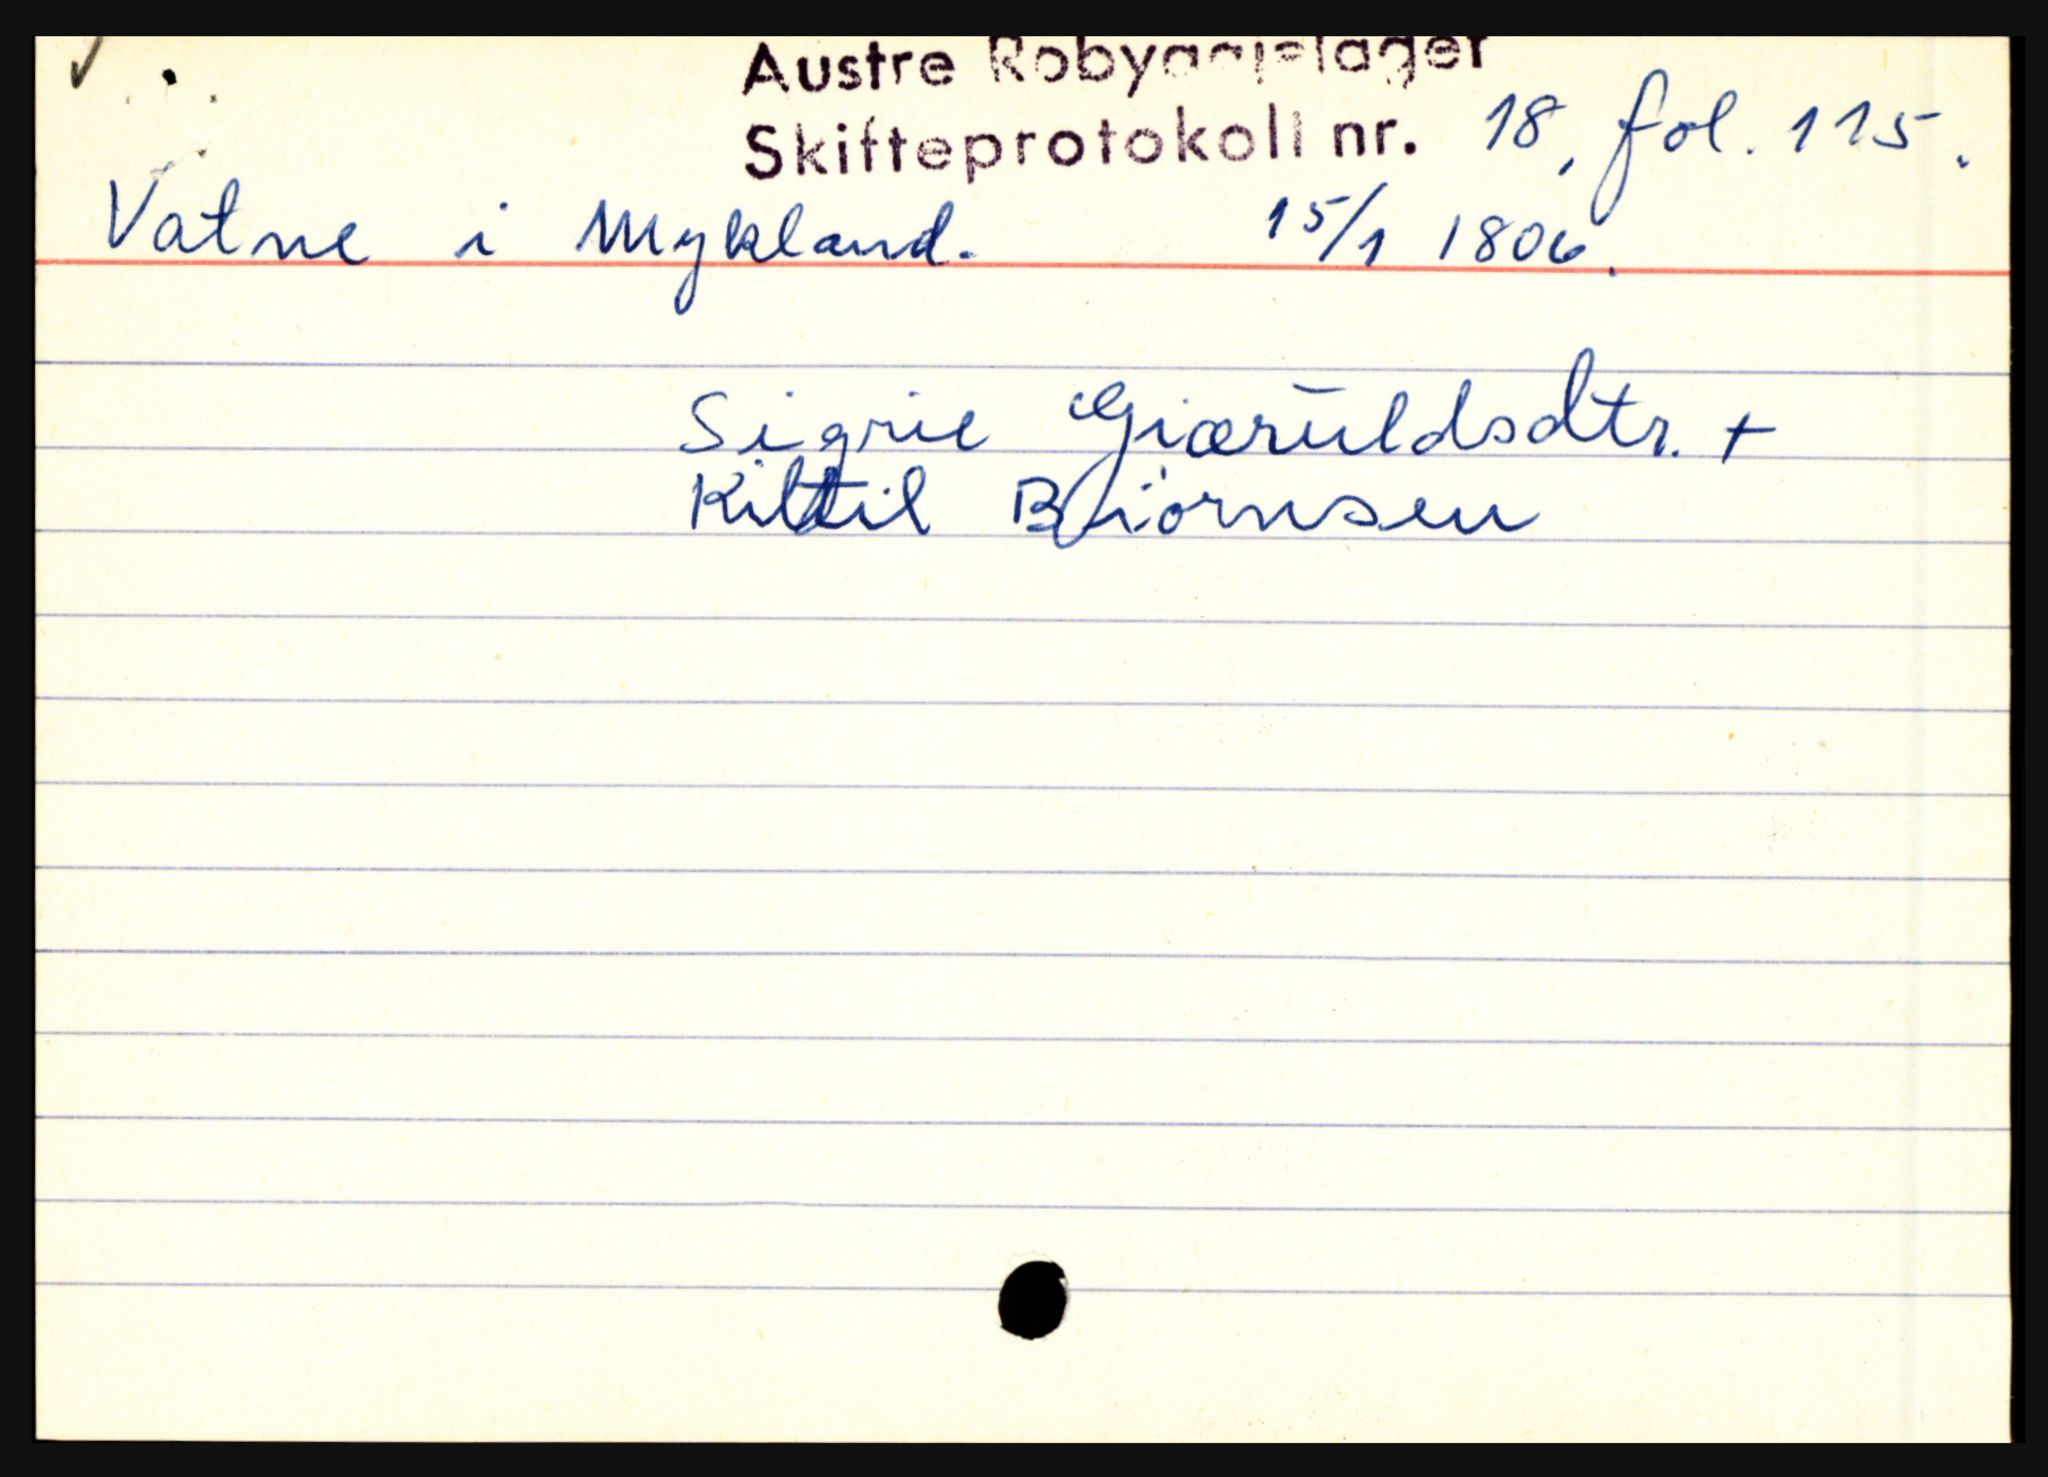 Austre Robyggjelager
Skifteprotokoll nr. 18, fol. 115.
Vatne i Mykland. 15/1 1806.
Sigrie Giærūldsdtr. +
Kittil Biörnsen